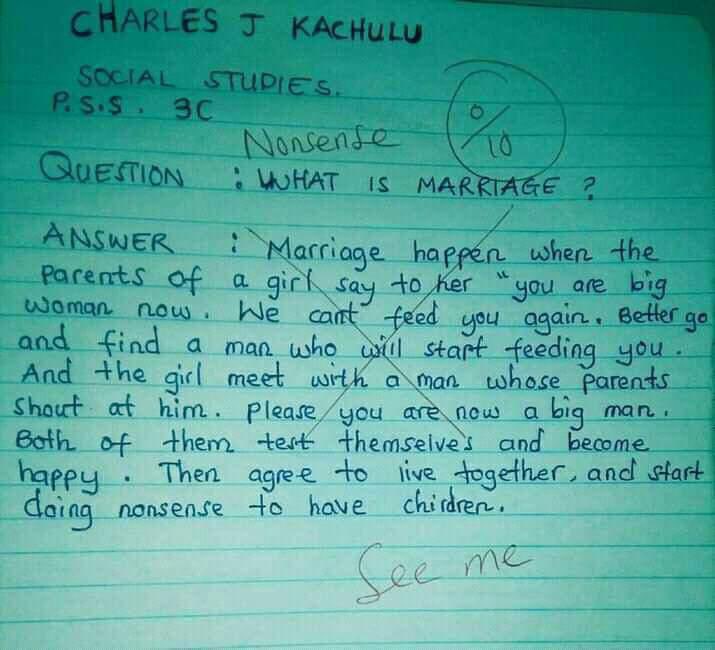 CHARLES J KACHULU
SOCIAL STUDIES.
P.S.S. 3C
0/10
Nonsense
QUESTION : WHAT IS MARRIAGE ?
ANSWER : Marriage happen when the
parents of a girl say to her "you are big
woman now. We cant feed you again. Better go
and find a man who will start feeding you.
And the girl meet with a man whose parents
shout at him. Please you are now a big man.
Both of them test themselves and become
happy. Then agree to live together, and start
doing nonsense to have chirdren.
See me